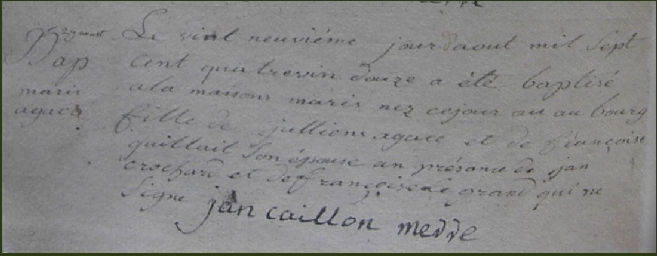 Bap
marie
agace
Le vint neuviéme jour daout mil sept
cent quatrevin douze a été baptisé
a la maison marie nez cejour au bourg
fille de jullien agace et de françoise
guillait son épouse an présance de jan
crochard et de françoise grand qui ne
signe jan caillon merre